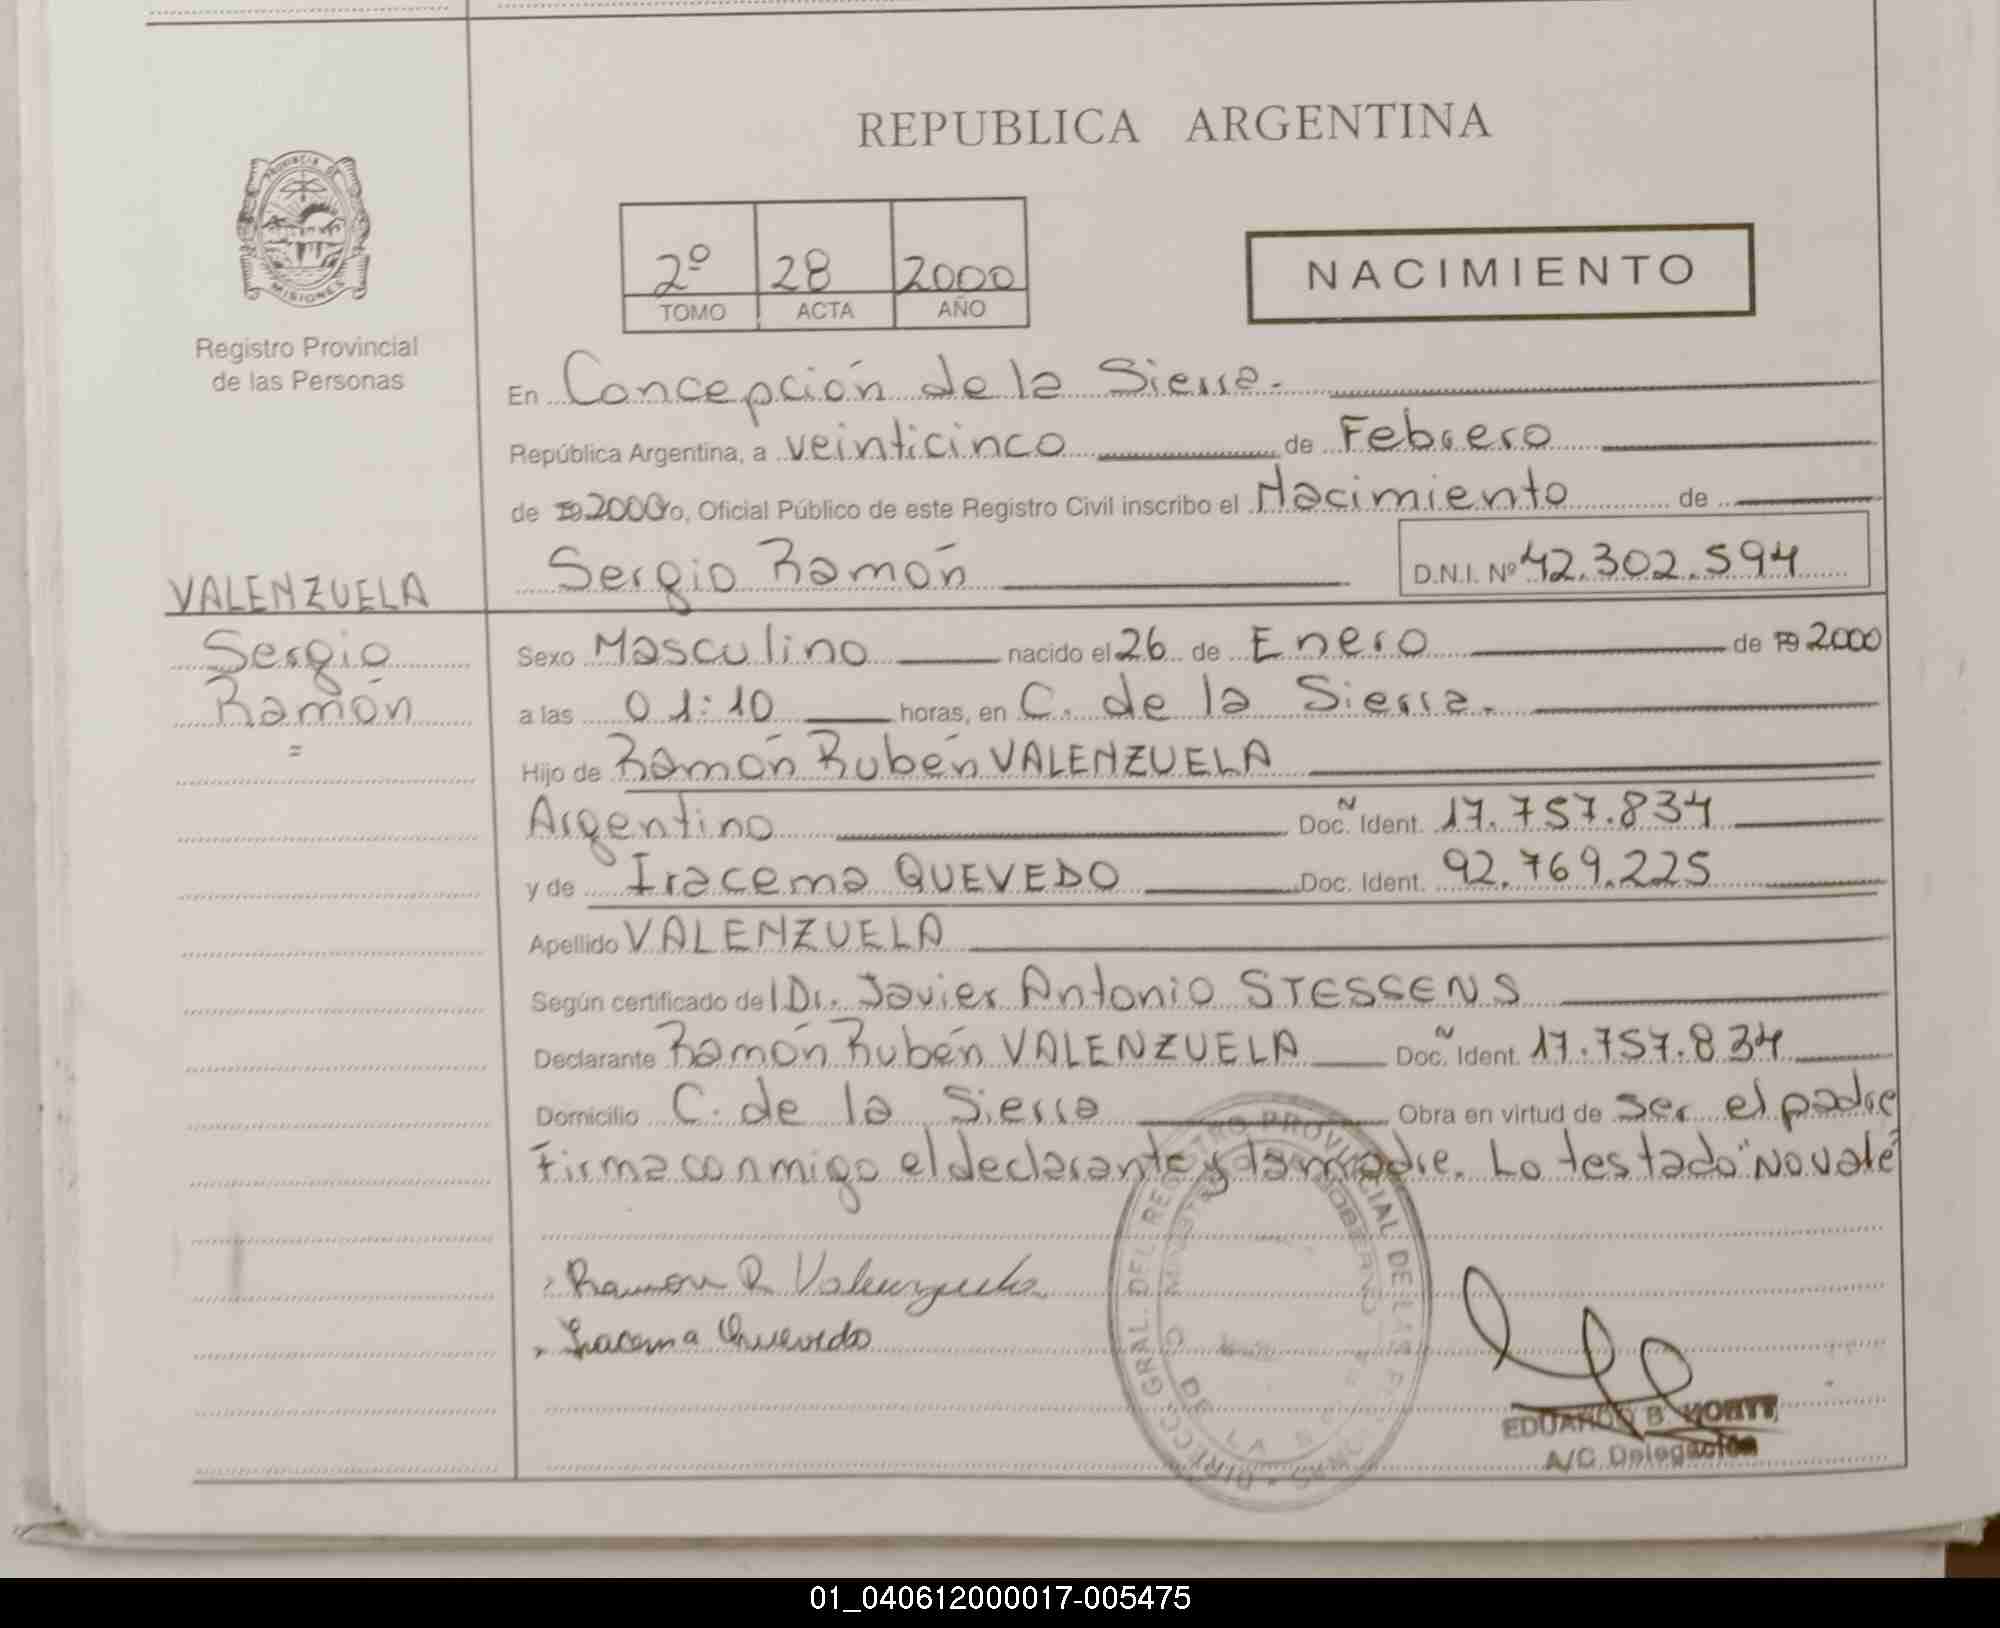 REPUBLICA ARGENTINA
PROVINCIA DE
MISIONES
Registro Provincial
de las Personas
2º 28 2000
TOMO ACTA AÑO
NACIMIENTO
En Concepción de la Sierra.
República Argentina, a veinticinco de Febrero
de 19 2000 Yo, Oficial Público de este Registro Civil inscribo el Nacimiento de
Sergio Ramón D.N.I. Nº 42.302.594
VALENZUELA
Sergio
Ramón
=
Sexo Masculino nacido el 26 de Enero de 19 2000
a las 01:10 horas, en C. de la Sierra.
Hijo de Ramón Rubén VALENZUELA
Argentino Doc. Ident. 17.757.834
y de Iracema QUEVEDO Doc. Ident. 92.769.225
Apellido VALENZUELA
Según certificado del Dr. Javier Antonio STESSENS
Declarante Ramón Rubén VALENZUELA Doc. Ident. 17.757.834
Domicilio C. de la Sierra Obra en virtud de ser el padre
Firma conmigo el declarante y la madre. Lo testado "No vale"
Ramon R Valenzuela
Iracema Quevedo
DIRECC. GRAL. DEL REGISTRO PROVINCIAL DE LAS
EDUARDO B.
A/C Delegación
01_040612000017-005475